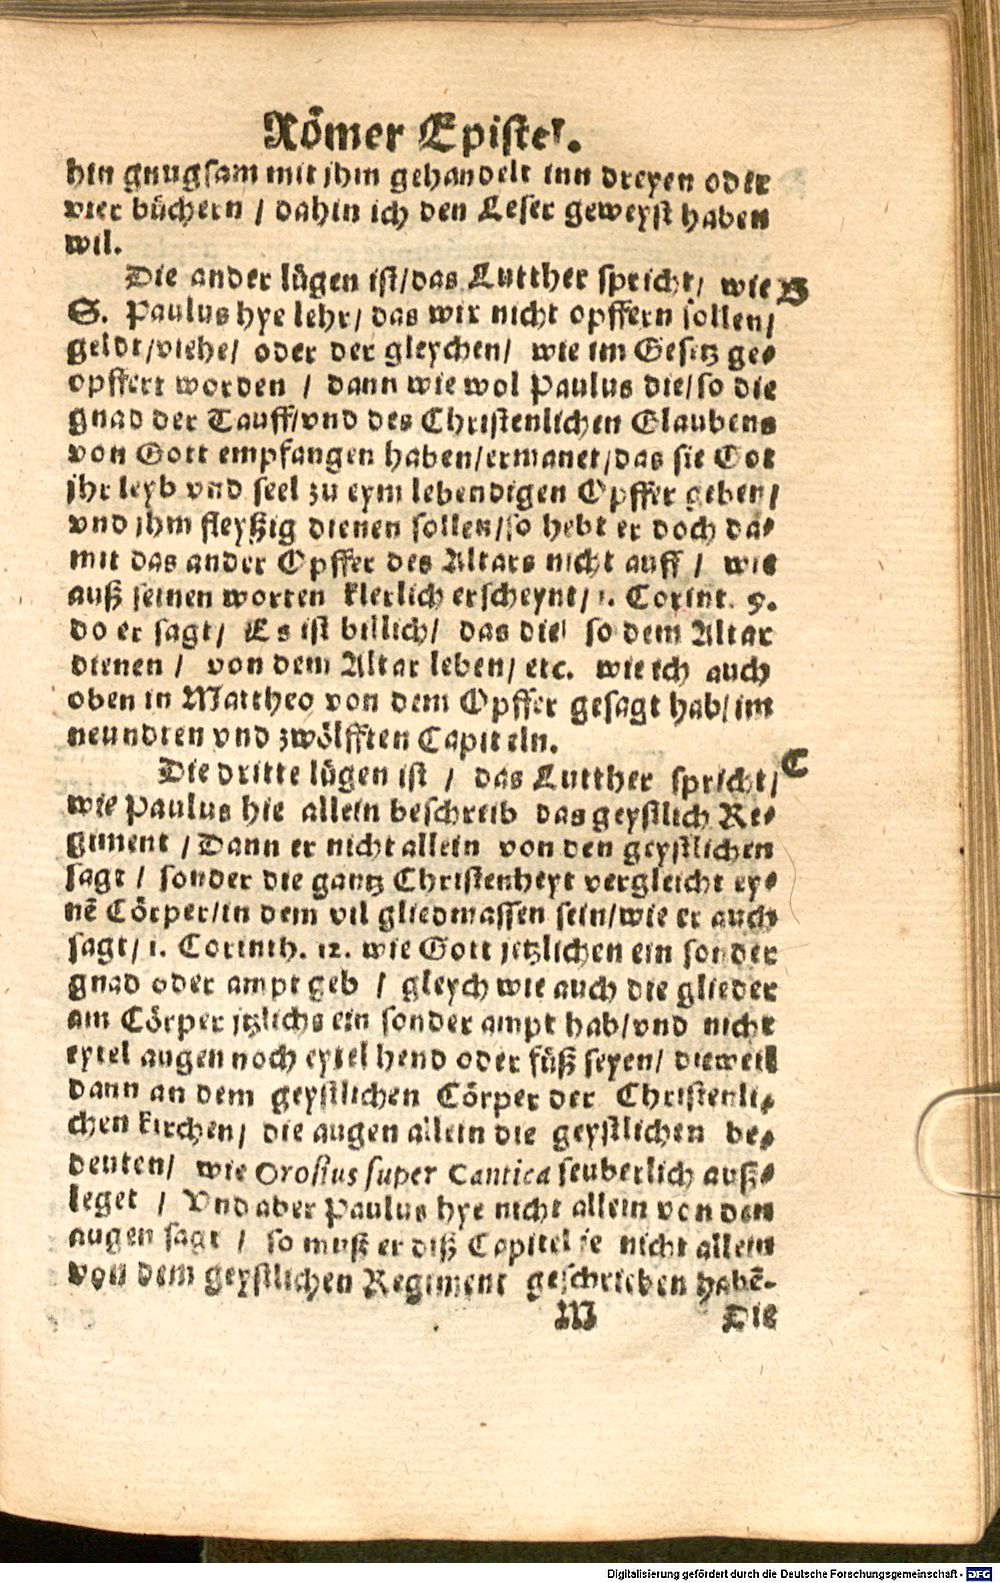 Römer Epistel.
hin gnugsam mit jhm gehandelt inn dreyen oder
vier büchern / dahin ich den Leser geweyst haben
wil.
Die ander lügen ist/das Lutther spricht/ wie B
S. Paulus hye lehr/ das wir nicht opffern sollen/
geldt/viehe/ oder der gleychen/ wie im Gesetz ge-
opffert worden / dann wie wol Paulus die/so die
gnad der Tauff/vnd des Christenlichen Glaubens
von Gott empfangen haben/ermanet/das sie Got
jhr leyb vnd seel zu eym lebendigen Opffer geben/
vnd jhm fleyßig dienen sollen/so hebt er doch da-
mit das ander Opffer des Altars nicht auff / wie
auß seinen worten klerlich erscheynt/ 1. Corint. 9.
do er sagt/ Es ist billich/ das die so dem Altar
dienen / von dem Altar leben/ etc. wie ich auch
oben in Mattheo von dem Opffer gesagt hab/im
neundten vnd zwölfften Capiteln.
Die dritte lügen ist / das Lutther spricht/ C
wie Paulus hie allein beschreib das geystlich Re-
giment / Dann er nicht allein von den geystlichen
sagt / sonder die gantz Christenheyt vergleicht ey-
nē Cörper/in dem vil gliedmassen sein/wie er auch
sagt/ 1. Corinth. 12. wie Gott jetzlichen ein sonder
gnad oder ampt geb / gleych wie auch die glieder
am Cörper jtzlichs ein sonder ampt hab/vnd nicht
eytel augen noch eytel hend oder füß seyen/ dieweil
dann an dem geystlichen Cörper der Christenli-
chen kirchen/ die augen allein die geystlichen be-
deuten/ wie Orosius super Cantica seuberlich auß-
leget / Vnd aber Paulus hye nicht allein von den
augen sagt / so muß er diß Capitel je nicht allein
von dem geystlichen Regiment geschrieben habē.
M Die
Digitalisierung gefördert durch die Deutsche Forschungsgemeinschaft - DFG